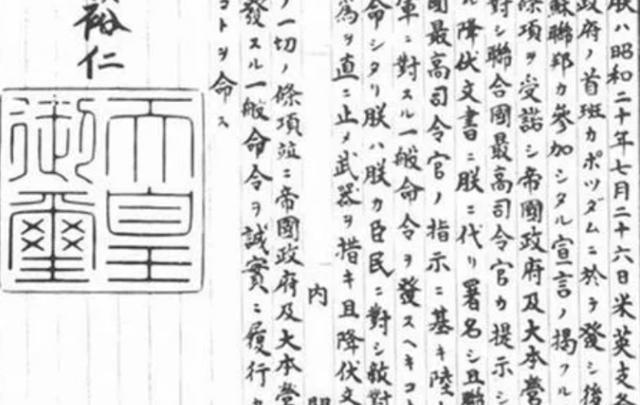 朕ハ昭和二十年七月二十六日米英支各
政府ノ首班カポツダムニ於テ發シ後
蘇聯邦カ參加シタル宣言ノ揭クル
條項ヲ受諾シ帝國政府及大本營
對シ聯合國最高司令官カ提示シ
ル降伏文書ニ朕ニ代リ署名シ且聯
國最高司令官ノ指示ニ基キ陸
軍ニ對スル一般命令ヲ發スヘキコト
命シタリ朕ハ朕カ臣民ニ對シ敵對
爲ヲ直ニ止メ武器ヲ措キ且降伏文
内閣
ノ一切ノ條項竝ニ帝國政府及大本營
發スル一般命令ヲ誠實ニ履行
コトヲ命ス
裕仁
天皇
御璽